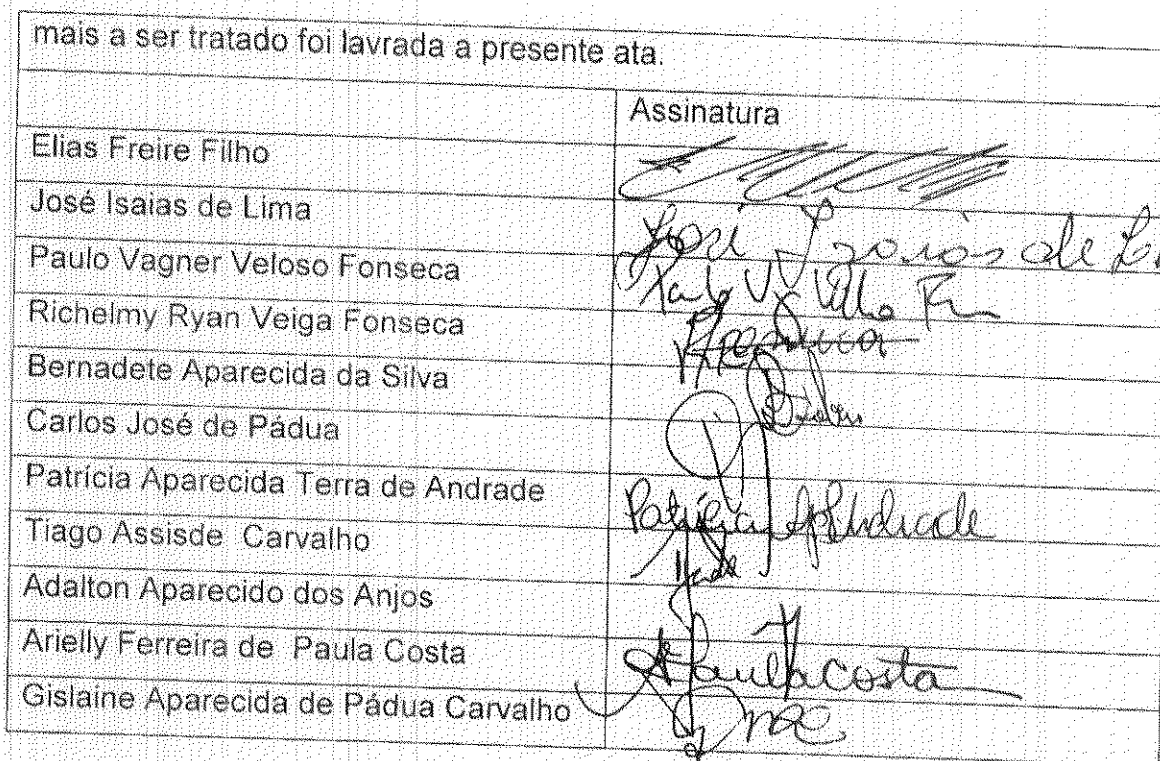 mais a ser tratado foi lavrada a presente ata.
Assinatura
Elias Freire Filho
José Isaias de Lima José
Paulo Vagner Veloso Fonseca
Richelmy Ryan Veiga Fonseca
Bernadete Aparecida da Silva
Carlos José de Pádua
Patrícia Aparecida Terra de Andrade Patrícia Ap Andrade
Tiago Assisde Carvalho
Adalton Aparecido dos Anjos
Arielly Ferreira de Paula Costa APaulaCosta
Gislaine Aparecida de Pádua Carvalho